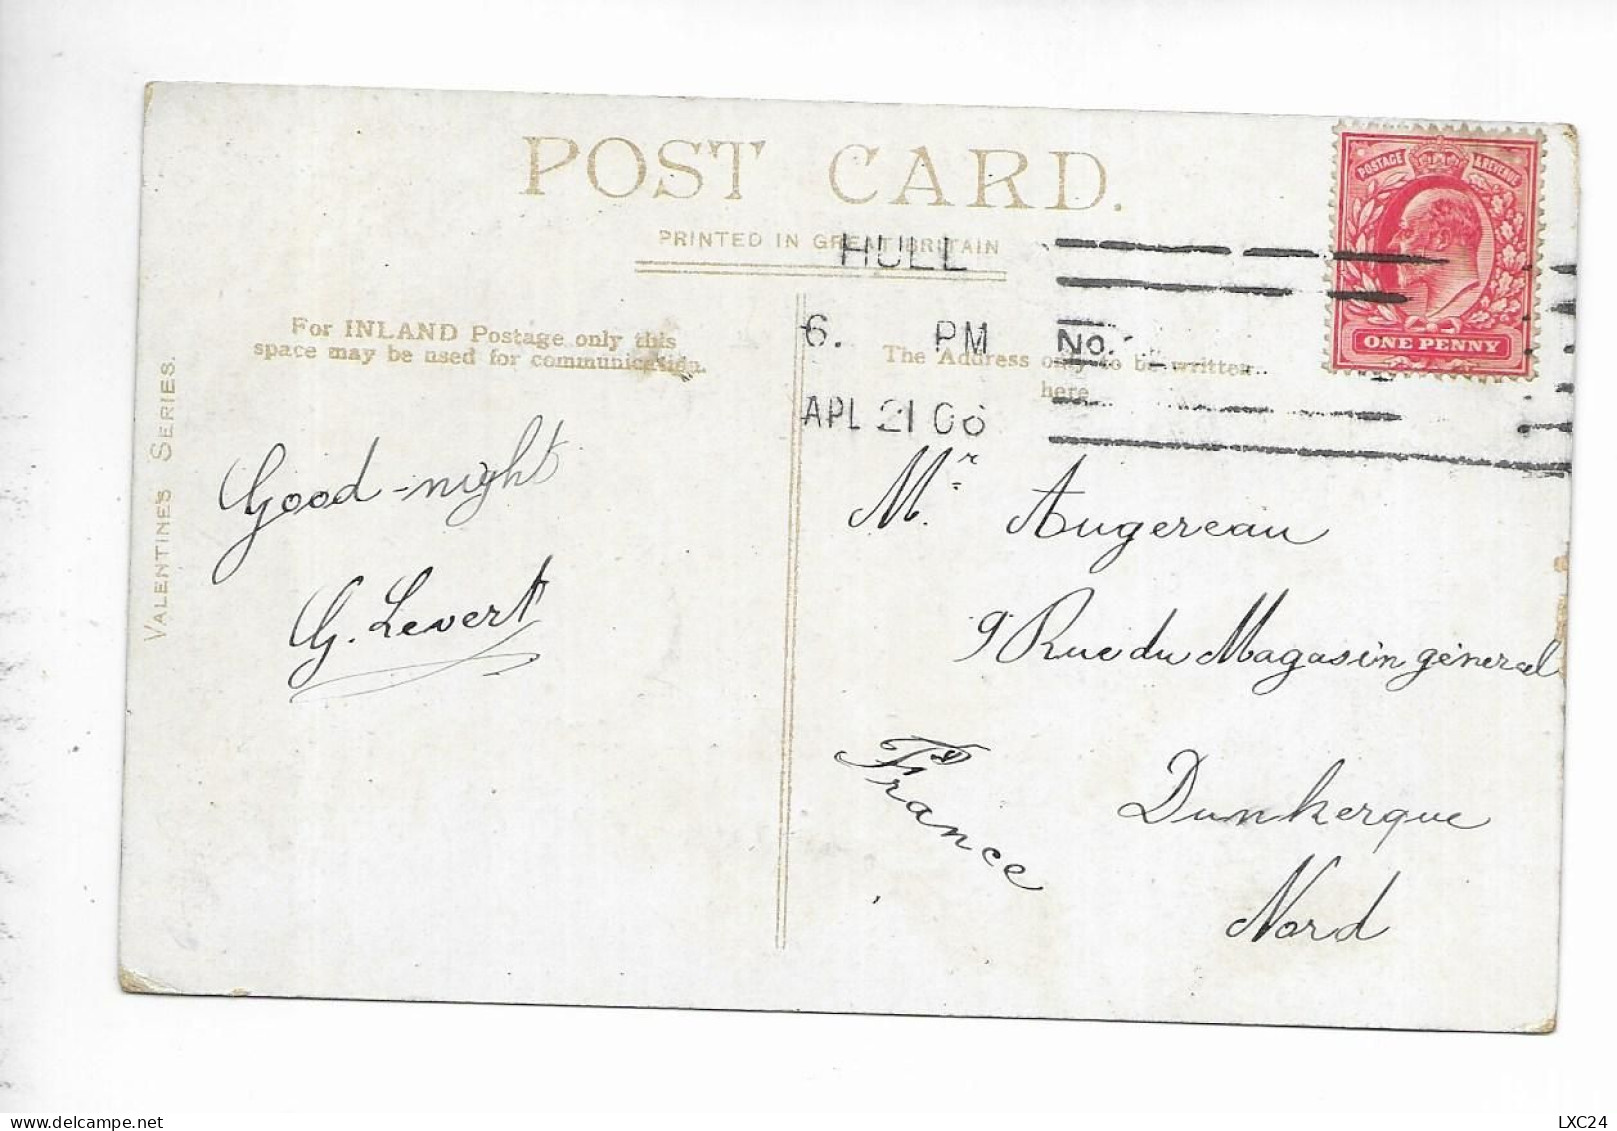 POST CARD.
PRINTED IN GREAT BRITAIN
HULL
6. PM
No.
APL 21 06
POSTAGE & REVENUE
ONE PENNY
For INLAND Postage only this
space may be used for communication.
The Address only to be written
here
VALENTINE'S SERIES.
Good-night
G. Levert
Mr. Augereau
9 Rue du Magasin général
Dunkerque
Nord
France
LXC24